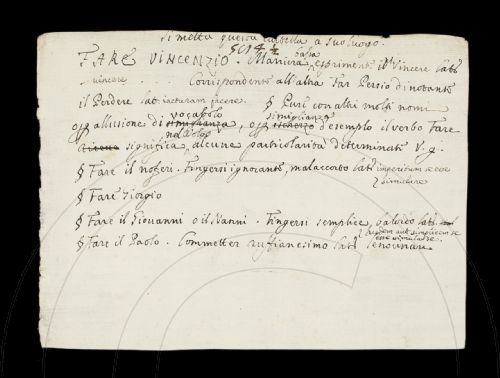 si metta questa cartella a suo luogo.
5C14½
FARE VINCENZIO. Maniera bassa esprimente il Vincere lat.
vincere. Corrispondente all'altra Far Persio dinotante
il Perdere lat. iacturam facere. § Puri con altri molti nomi
o p allusione di vocabolo similianza, o p similianza scherzo d'esempio il verbo Fare
nel Volgo significa, alcune particolarità determinate V.g.
§ Fare il noferi. Fingersi ignorante, malaccorto lat. imperitum se esse
simulare
§ Fare Giorgio
§ Fare il Giovanni o il Nanni. Fingersi semplice, balordo lat.
rudem aut simplicem se
esse simulare.
§ Fare il Paolo. Commetter ruffianesimo lat. lenocinare